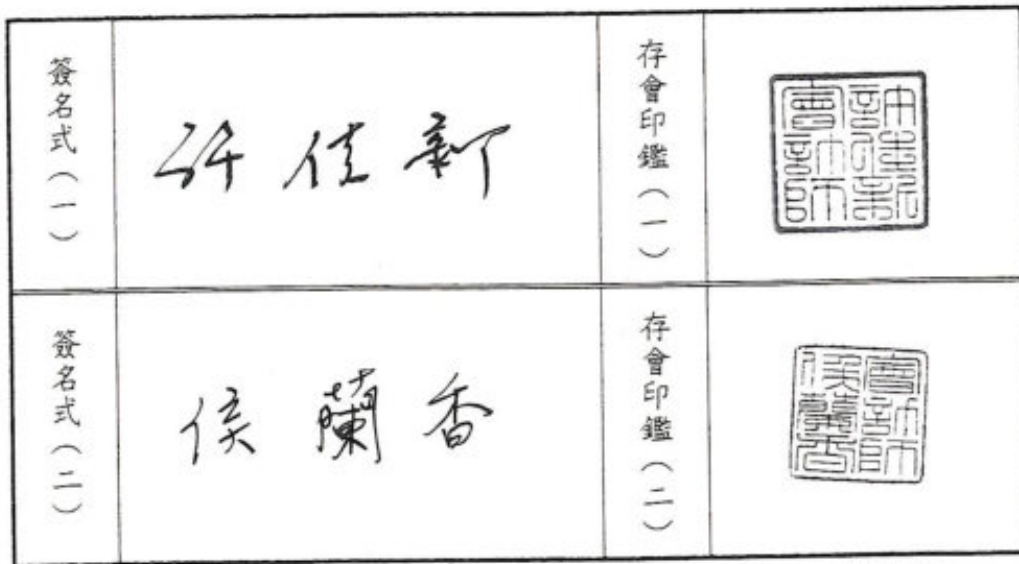 簽名式（一）
許佳新
存會印鑑（一）
許佳新會計師
簽名式（二）
侯蘭香
存會印鑑（二）
會計師侯蘭香